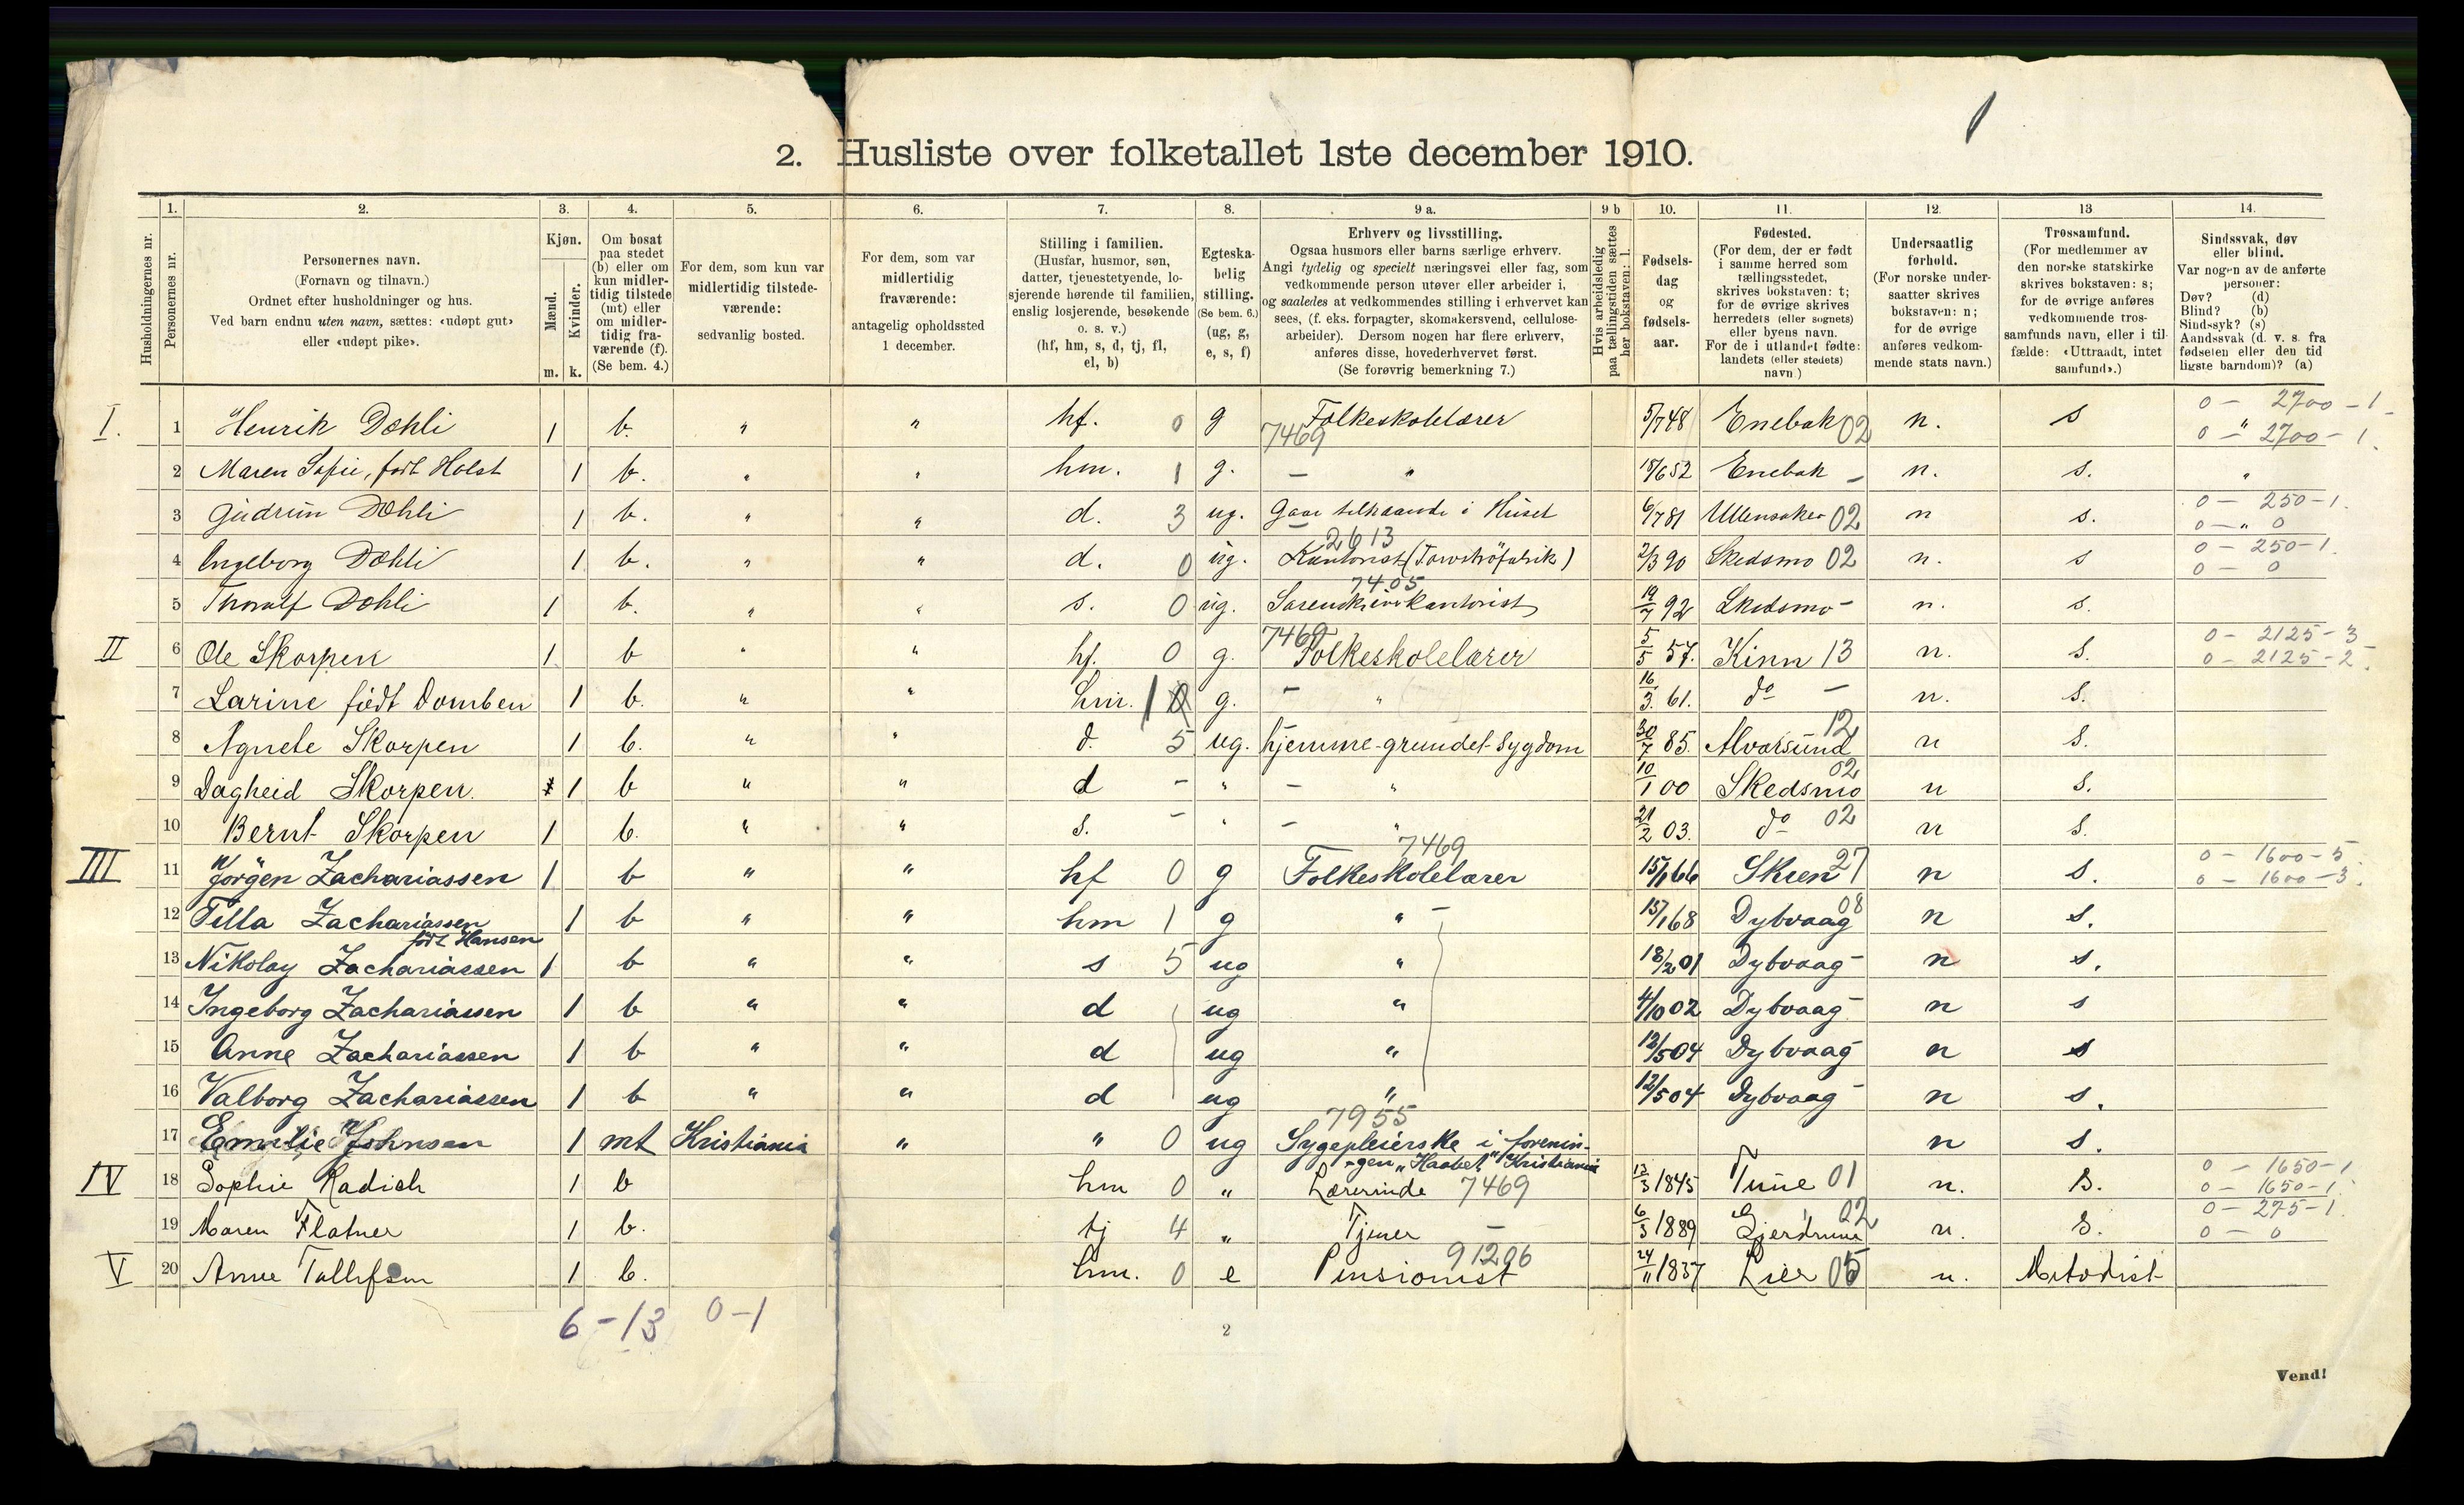 2. Husliste over folketallet 1ste december 1910.
1. 2. 3. 4. 5. 6. 7. 8. 9 a. 9 b 10. 11. 12. 13 14.
Husholdningernes nr.
Personernes nr.
Personernes navn.
(Fornavn og tilnavn.)
Ordnet efter husholdninger og hus.
Ved barn endnu uten navn, sættes: «udøpt gut»
eller «udøpt pike».
Kjøn.
Mænd.
Kvinder.
m. k.
Om bosat
paa stedet
(b) eller om
kun midler-
tidig tilstede
(mt) eller
om midler-
tidig fra-
værende (f).
(Se bem. 4.)
For dem, som kun var
midlertidig tilstede-
værende:
sedvanlig bosted.
For dem, som var
midlertidig
fraværende:
antagelig opholdssted
1 december.
Stilling i familien.
(Husfar, husmor, søn,
datter, tjenestetyende, lo-
sjerende hørende til familien,
enslig losjerende, besøkende
o. s. v.)
(hf, hm, s, d, tj, fl,
el, b)
Egteska-
belig
stilling.
(Se bem. 6.)
(ug, g,
e, s, f)
Erhverv og livsstilling.
Ogsaa husmors eller barns særlige erhverv.
Angi tydelig og specielt næringsvei eller fag, som
vedkommende person utøver eller arbeider i,
og saaledes at vedkommendes stilling i erhvervet kan
sees, (f. eks. forpagter, skomakersvend, cellulose-
arbeider). Dersom nogen har flere erhverv,
anføres disse, hovederhvervet først.
(Se forøvrig bemerkning 7.)
Hvis arbeidsledig
paa tællingstiden sættes
her bokstaven: l.
Fødsels-
dag
og
fødsels-
aar.
Fødested.
(For dem, der er født
i samme herred som
tællingsstedet,
skrives bokstaven: t;
for de øvrige skrives
herredets (eller sognets)
eller byens navn.
For de i utlandet fødte:
landets (eller stedets)
navn.)
Undersaatlig
forhold.
(For norske under-
saatter skrives
bokstaven: n;
for de øvrige
anføres vedkom-
mende stats navn.)
Trossamfund.
(For medlemmer av
den norske statskirke
skrives bokstaven: s;
for de øvrige anføres
vedkommende tros-
samfunds navn, eller i til-
fælde: «Uttraadt, intet
samfund».)
Sindssvak, døv
eller blind.
Var nogen av de anførte
personer:
Døv? (d)
Blind? (b)
Sindssyk? (s)
Aandssvak (d. v. s. fra
fødselen eller den tid
ligste barndom)? (a)
I. 1 Henrik Dæhli 1 b. " " hf. 0 g 7469 Folkeskolelærer 5/7 48 Enebak 02 n. s 0 - 2700 - 1
0 - " 2700 - 1.
2 Maren Sofie, født Holst 1 b. " " hm. 1 g. - " 18/6 52 Enebak - n. s. "
3 Gudrun Dæhli 1 b. " " d. 3 ug. Gaar tilhaande i Huset 6/7 81 Ullensaker 02 n s. 0 - 250 - 1.
0 - " 0
4 Ingeborg Dæhli 1 b. " " d. 0 ug. 2613 Kontorist (Torvströfabrik) 2/3 90 Skedsmo 02 n. s 0 - 250 - 1.
0 - 0
5 Thoralf Dæhli 1 b. " " s. 0 ug. 7405 Sorenskriverkontorist 19/7 92 Skedsmo - n. s.
II 6 Ole Skorpen 1 b " " hf. 0 g. 7469 Folkeskolelærer 5/5 57. Kinn 13 n. s. 0 - 2125 - 3
0 - 2125 - 2.
7 Larine født Domben 1 b. " " hm. 1 0 g. - " 16/3. 61. do - n. s.
8 Agnete Skorpen 1 b. " " d. 5 ug. hjemme-grundet-Sygdom 30/7 85. Alvorsund 12 n s.
9 Dagheid Skorpen. 1 b " " d - " - " 10/1 00 Skedsmo 02 n s.
10 Bernt Skorpen 1 b. " " s. - " - " 21/2 03. do 02 n s.
III 11 Jörgen Zachariassen 1 b " " hf 0 g 7469 Folkeskolelærer 15/1 66 Skien 27 n s. 0 - 1600 - 5.
0 - 1600 - 3.
12 Tilla Zachariassen 1 b " " hm 1 g " - 15/1 68 Dybvaag 08 n s.
født Hansen
13 Nikolay Zachariassen 1 b " " s 5 ug " 18/2 01 Dybvaag - n s.
14 Ingeborg Zachariassen 1 b " " d ug " 4/10 02 Dybvaag - n s
15 Anne Zachariassen 1 b " " d ug " 12/5 04 Dybvaag - n s
16 Valborg Zachariassen 1 b " " d ug " 12/5 04 Dybvaag - n s.
17 Emilie Johnsen 1 mt Kristiania " " 0 ug 7955 Sygepleierske i forenin-
-gen "Haabet" Kristiania n s.
IV 18 Sophie Radich 1 b hm 0 " Lærerinde 7469 13/3 1845 Tune 01 n. s. 0 - 1650 - 1
0 - 1650 - 1.
19 Maren Flatner 1 b. tj 4 " Tjener - 6/3 1889 Gjerdrum 02 n. s. 0 - 275 - 1.
0 - 0
V 20 Anne Tollefsen 1 b. hm. 0 e 91206 Pensionist 24/11 1837 Lier 05 n. Metodist
6 - 13 0 - 1
2
Vend!